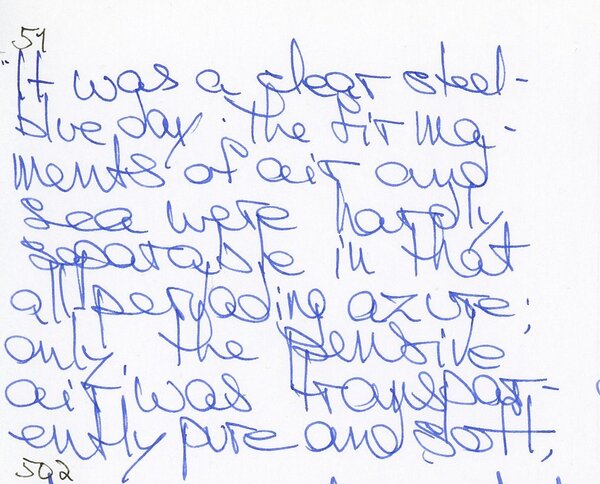 51
"It was a clear steel-
blue day. The firma-
ments of air and
sea were hardly
separable in that
all-pervading azure;
only, the pensive
air was transpar-
ently pure and soft,
502